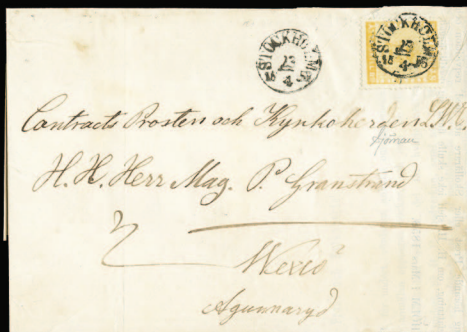 STOCKHOLM
4
STOCKHOLM
4
Contracts Prosten och Kyrkoherden L.N.O.
H. H. Herr Mag. P. Granstrand
Wexiö
Agunnaryd